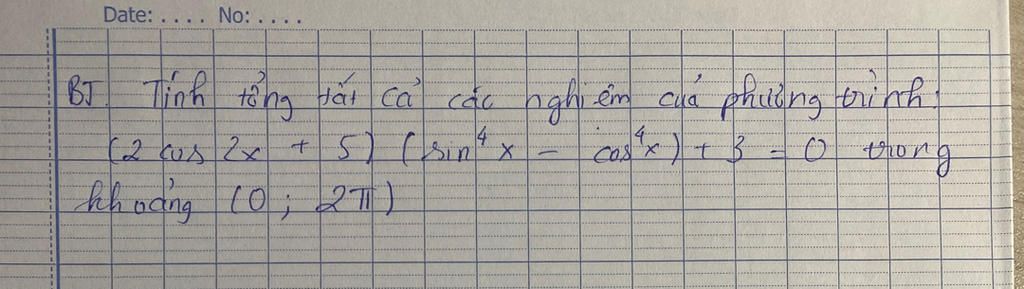 Date: .... No: ....
BT Tính tổng tất cả các nghiệm của phương trình:
(2 cos 2x + 5) (sin⁴x - cos⁴x) + 3 = 0 trong
khoảng (0 ; 2π)